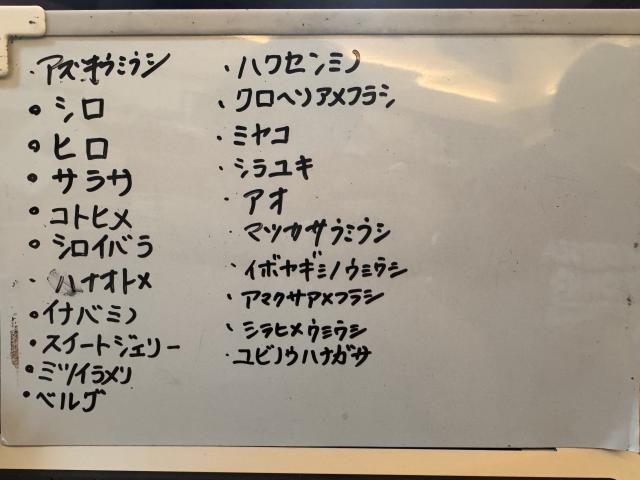 ・アズキウミウシ
・シロ
・ヒロ
・サラサ
・コトヒメ
・シロイバラ
・ハナオトメ
・イナバミノ
・スイートジェリー
・ミツイラメリ
・ベルグ
・ハクセンミノ
・クロヘソアメフラシ
・ミヤコ
・シラユキ
・アオ
・マツカサウミウシ
・イボヤギミノウミウシ
・アマクサアメフラシ
・シラヒメウミウシ
・ユビノウハナガサ